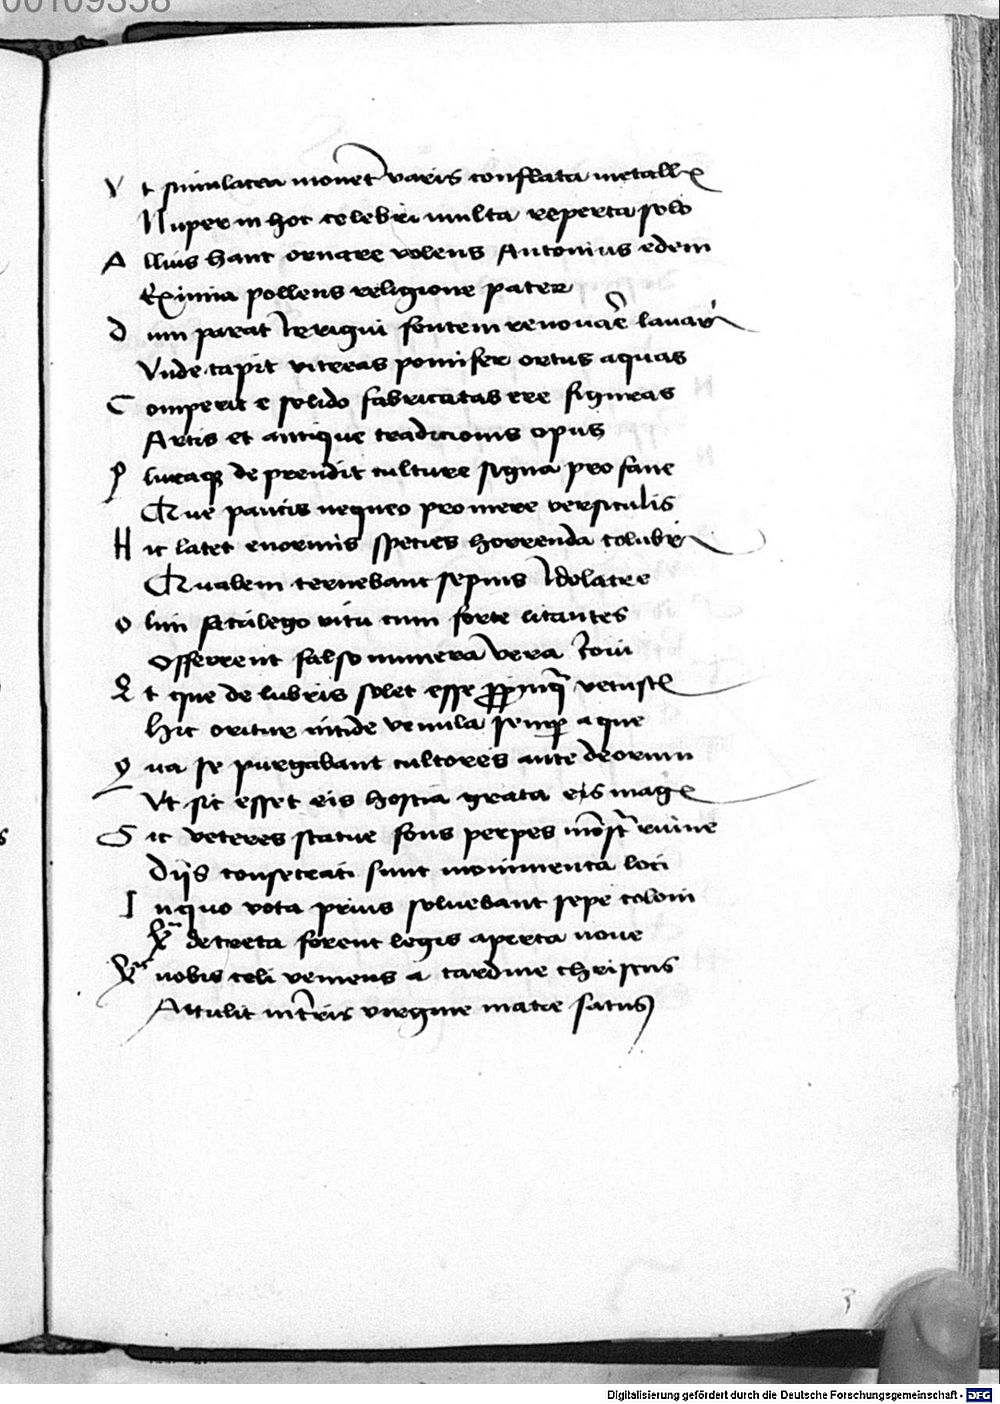 00109358
Vt simulacra monent variis conflata metallis
Nuper in hoc celebri multa reperta solo
Alluis hanc ornare volens Antonius edem
Eximia pollens religione pater
Dum parat Irrigui fontem renouare lauacri
Vnde capit vitreas pomifer ortus aquas
Comperit e solido fabricatas ere figuras
Artis et antique tradicionis opus
Pluraque deprendit culture signa profane
Que paucis nequeo promere versiculis
Hic latet enormis species horrenda colubri
Qualem cernebant sepius Idolatre
Olim sacrilego ritu cum forte litantes
Offerrent falso munera vera Ioui
Et que delubris solet esse propinqua vetustis
Hic oritur nitide venula semper aque
Qua se purgabant cultores ante deorum
Vt sic esset eis hostia grata magis
Sic veteres statue fons perpes monstrat ruine
Diis consecrati sunt monimenta loci
Inquo vota prius soluebant sepe coloni
Quam decreta forent legis aperta noue
Quam nobis celi veniens a cardine christus
Attulit intactis virgine matre satus
3
Digitalisierung gefördert durch die Deutsche Forschungsgemeinschaft - DFG